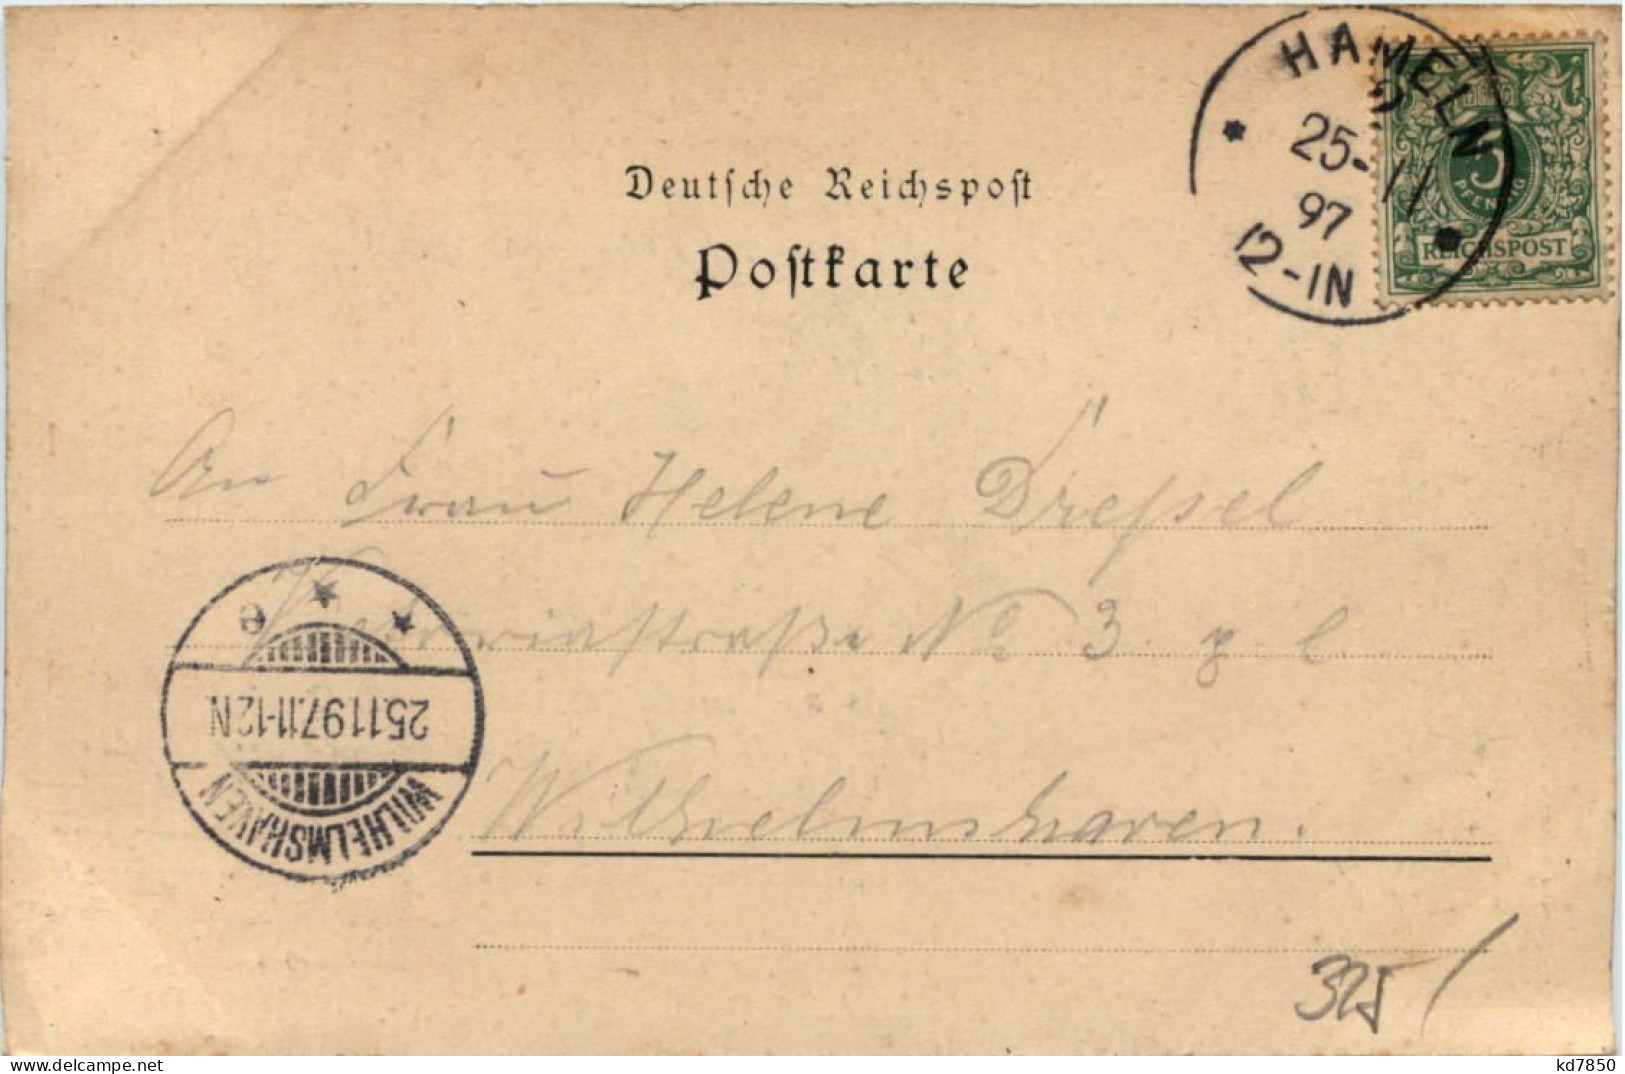 HAMELN
25-11
97
12-1N
5
PFENNIG
REICHSPOST
Deutſche Reichspoſt
Poſtkarte
An Frau Helene Dreſsel
No 3. p. l.
Wilhelmshaven.
e
25.11.97.11-12N.
WILHELMSHAVEN
325
www.delcampe.net
kd7850